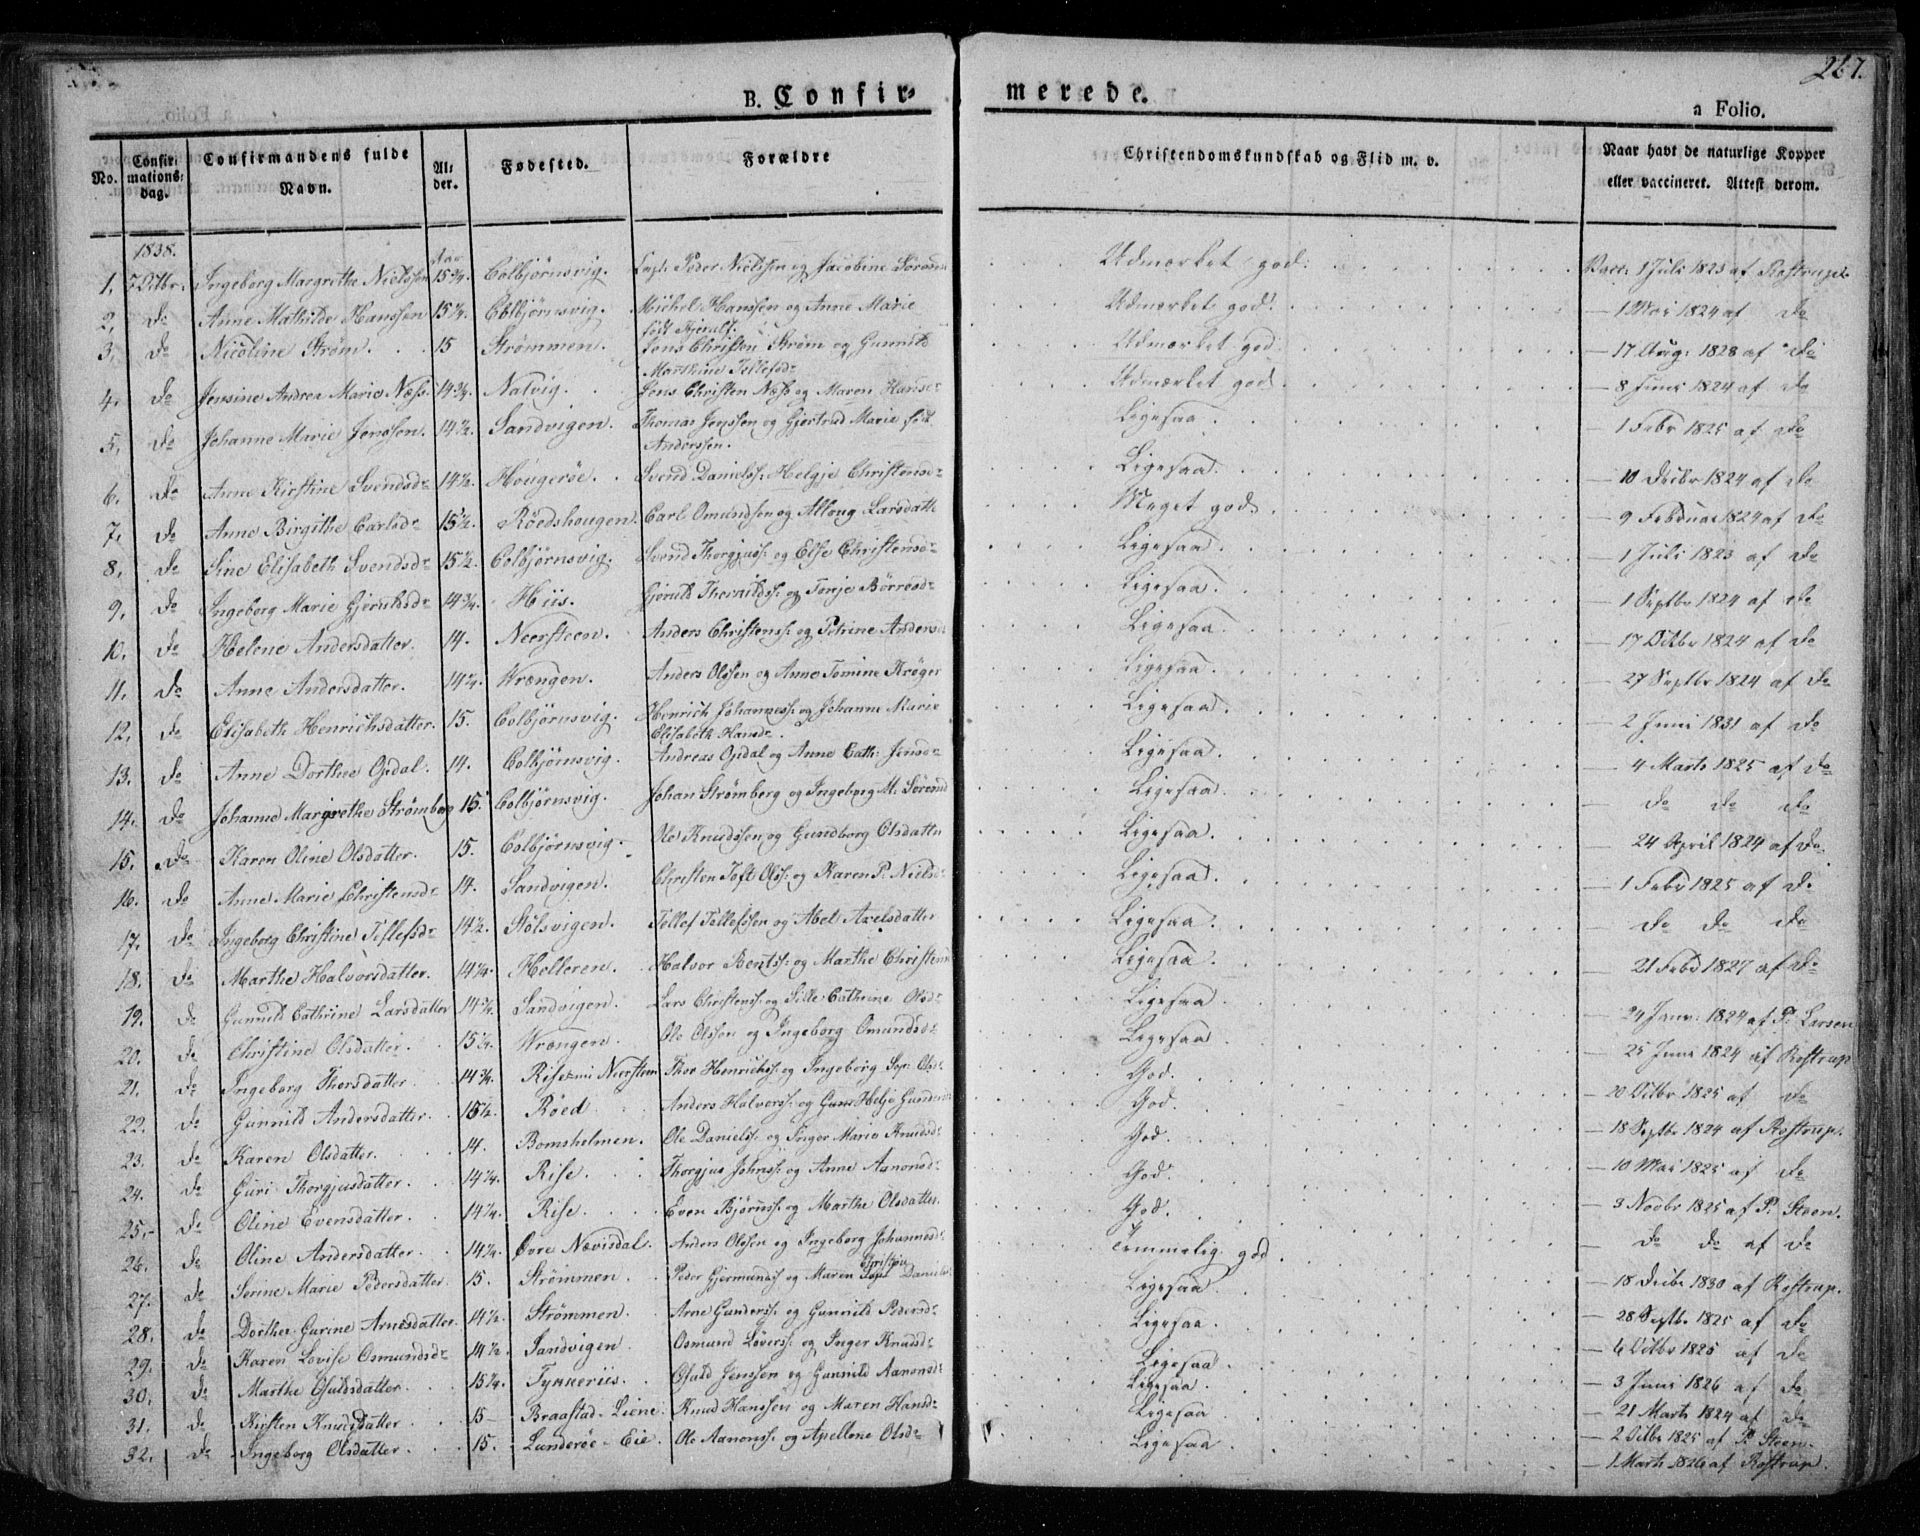 267.
B. Confir- merede.
a Folio.
No. Confir: mations: dag. Confirmandens fulde Navn. Al- der. Fødested. Forældre Christendomskundskab og Flid m. v. Naar havt de naturlige Kopper eller vaccineret. Attest derom.
1838. Aar
1. 7 Octbr. Ingeborg Margrethe Nielssen 15¾ Colbjørnsvig. Capt: Peder Nielssen og Jacobine Sørens Udmærket god. Vacc: 1 Juli 1823 af Rostrup.
2, do Anne Mathilde Hanssen 15¼. Colbjørnsvig. Michel Hanssen og Anne Marie Udmærket god. — 1 Mai 1824 af do
født
3, do Nicoline Strøm. 15 Strømmen. Jens Christen Strøm og Gunnild Udmærket god. — 17 Aug: 1828 af do
Marthine Tellefsdr
4. do Jensine Andrea Marie Næss. 14¾. Natvig. Jens Christen Næss og Maren Hans: Udmærket god. — 8 Juni 1824 af do
5, do Johanne Marie Jenssen. 14½. Sandvigen. Thomas Jenssen og Gjertrud Marie født Ligesaa. — 1 Febr 1825 af do
Anderssen.
6. do Anne Kirstine Svendsdr 14½. Hovgerøe. Svend Daniels: Helgje Christensdr Ligesaa. — 10 Decbr 1824 af do
7. do Anne Birgithe Carlsdr 15½. Röedshougen. Carl Omundsen og Alloug Larsdatte Meget god. — 9 Februar 1824 af do
8. do Sine Elisabeth Svendsdr 15½. Colbjørnsvig. Svend Thorgjuss: og Else Christensdr Ligesaa. — 1 Juli 1823 af do
9. do Ingeborg Marie Gjeruldsdr 14¾. Hiis. Gjeruld Thorvilds: og Tonje Børresdr Ligesaa. — 1 Septbr 1824 af do
10. do Helene Andersdatter. 14. Neersteen. Anders Christens: og Petrine Andersd Ligesaa. — 17 Octbr 1824 af do
11. do Anne Andersdatter. 14¼. Vrængen. Anders Olssen og Anne Tomine Krøger Ligesaa. — 27 Septbr 1824 af do
12. do Elisabeth Henrichsdatter. 15. Colbjørnsvig. Henrich Johanness: og Johanne Marie Ligesaa. — 2 Juni 1831 af do
Elisabeth Hansdr.
13. do Anne Dorthea Opdal. 14. Colbjørnsvig. Andreas Opdal og Anne Cath: Jensdr Ligesaa. — 4 Marts 1825 af do
14. do Johanne Margrethe Strømberg 15. Colbjørnsvig. Johan Strømberg og Ingeborg M. Sørensd Ligesaa. — do do do
15. do Karen Oline Olsdatter. 15. Colbjørnsvig. Ole Knudssen og Gundborg Olsdatter Ligesaa. — 24 April 1824 af do
16. do Anne Marie Christensdr 14. Sandvigen. Christen Toft Olss: og Karen P. Nielsd: Ligesaa. — 1 Febr 1825 af do
17. do Ingeborg Christine Tellefsdr 14½. Stölsvigen. Tellef Tellefssen og Abel Axelsdatter Ligesaa. — do do do
18. do Marthe Halvorsdatter. 14¼. Helleren. Halvor Bentss: og Marthe Christensd Ligesaa. — 21 Febr 1827 af do
19. do Gunnild Cathrine Larsdatter 14¾. Sandvigen. Lars Christenss: og Sille Cathrine Olsd: Ligesaa. — 24 Janu. 1824 af P. Larsen
20. do Christine Olsdatter. 15¼. Vrængen. Ole Olssen og Ingeborg Omundsdr Ligesaa. — 25 Juni 1824 af Rostrup
21. do Ingeborg Thorsdatter 14¾. Rise Neersteen Thor Henrichss: og Ingeborg Olsdr God. — 20 Octbr 1825 af do
22. do Gunnild Andersdatter. 15½. Röed Anders Halvorss: og Helje Gunders God. — 18 Septbr 1824 af Rostrup.
23. do Karen Olsdatter. 14. Bomshelmen. Ole Danielss: og Inger Marie Knudsd: God. — 10 Mai 1825 af do
24. do Guri Thorgjusdatter. 14¼. Rise. Thorgjus Johnss: og Anne Aanonsdr God. — 3 Novbr 1825 af P. Steen.
25. do Oline Evensdatter. 14¼. Rise. Even Bjørnss: og Marthe Olsdatter. God. — do do af do
26. do Oline Andersdatter. 14¼. Øvre Nævisdal. Anders Olssen og Ingeborg Johannesdr Temmelig god. — 18 Decbr 1830 af Rostrup.
27. do Serine Marie Pedersdatter. 15. Strømmen. Peder Gjermunds: og Maren Daniels: Ligesaa. — 28 Septbr 1825 af do
28. do Dorthea Gurine Arnesdatter. 14½. Strømmen. Arne Gunderss: og Gunnild Pedersdr Ligesaa. — 6 Octbr 1825 af do
29. do Karen Lovise Osmundsdr 14½. Sandvigen. Osmund Löverss: og Inger Knudsdr Ligesaa. — 3 Juni 1826 af do
30. do Marthe Osuldsdatter. 15¼. Tynneriis. Osuld Jenssen og Gunnild Aanonsd: Ligesaa. — 21 Marts 1824 af do
31. do Kirsten Knudsdatter 15– Braastad-Liene. Knud Hanssen og Maren Hansdr Ligesaa. — 2 Octbr 1825 af P. Steen.
32. do Ingeborg Olsdatter. 15. Lunderöe-Eie. Ole Aanonss: og Apellone Olsdr Ligesaa. — 1 Marts 1826 af Rostrup.